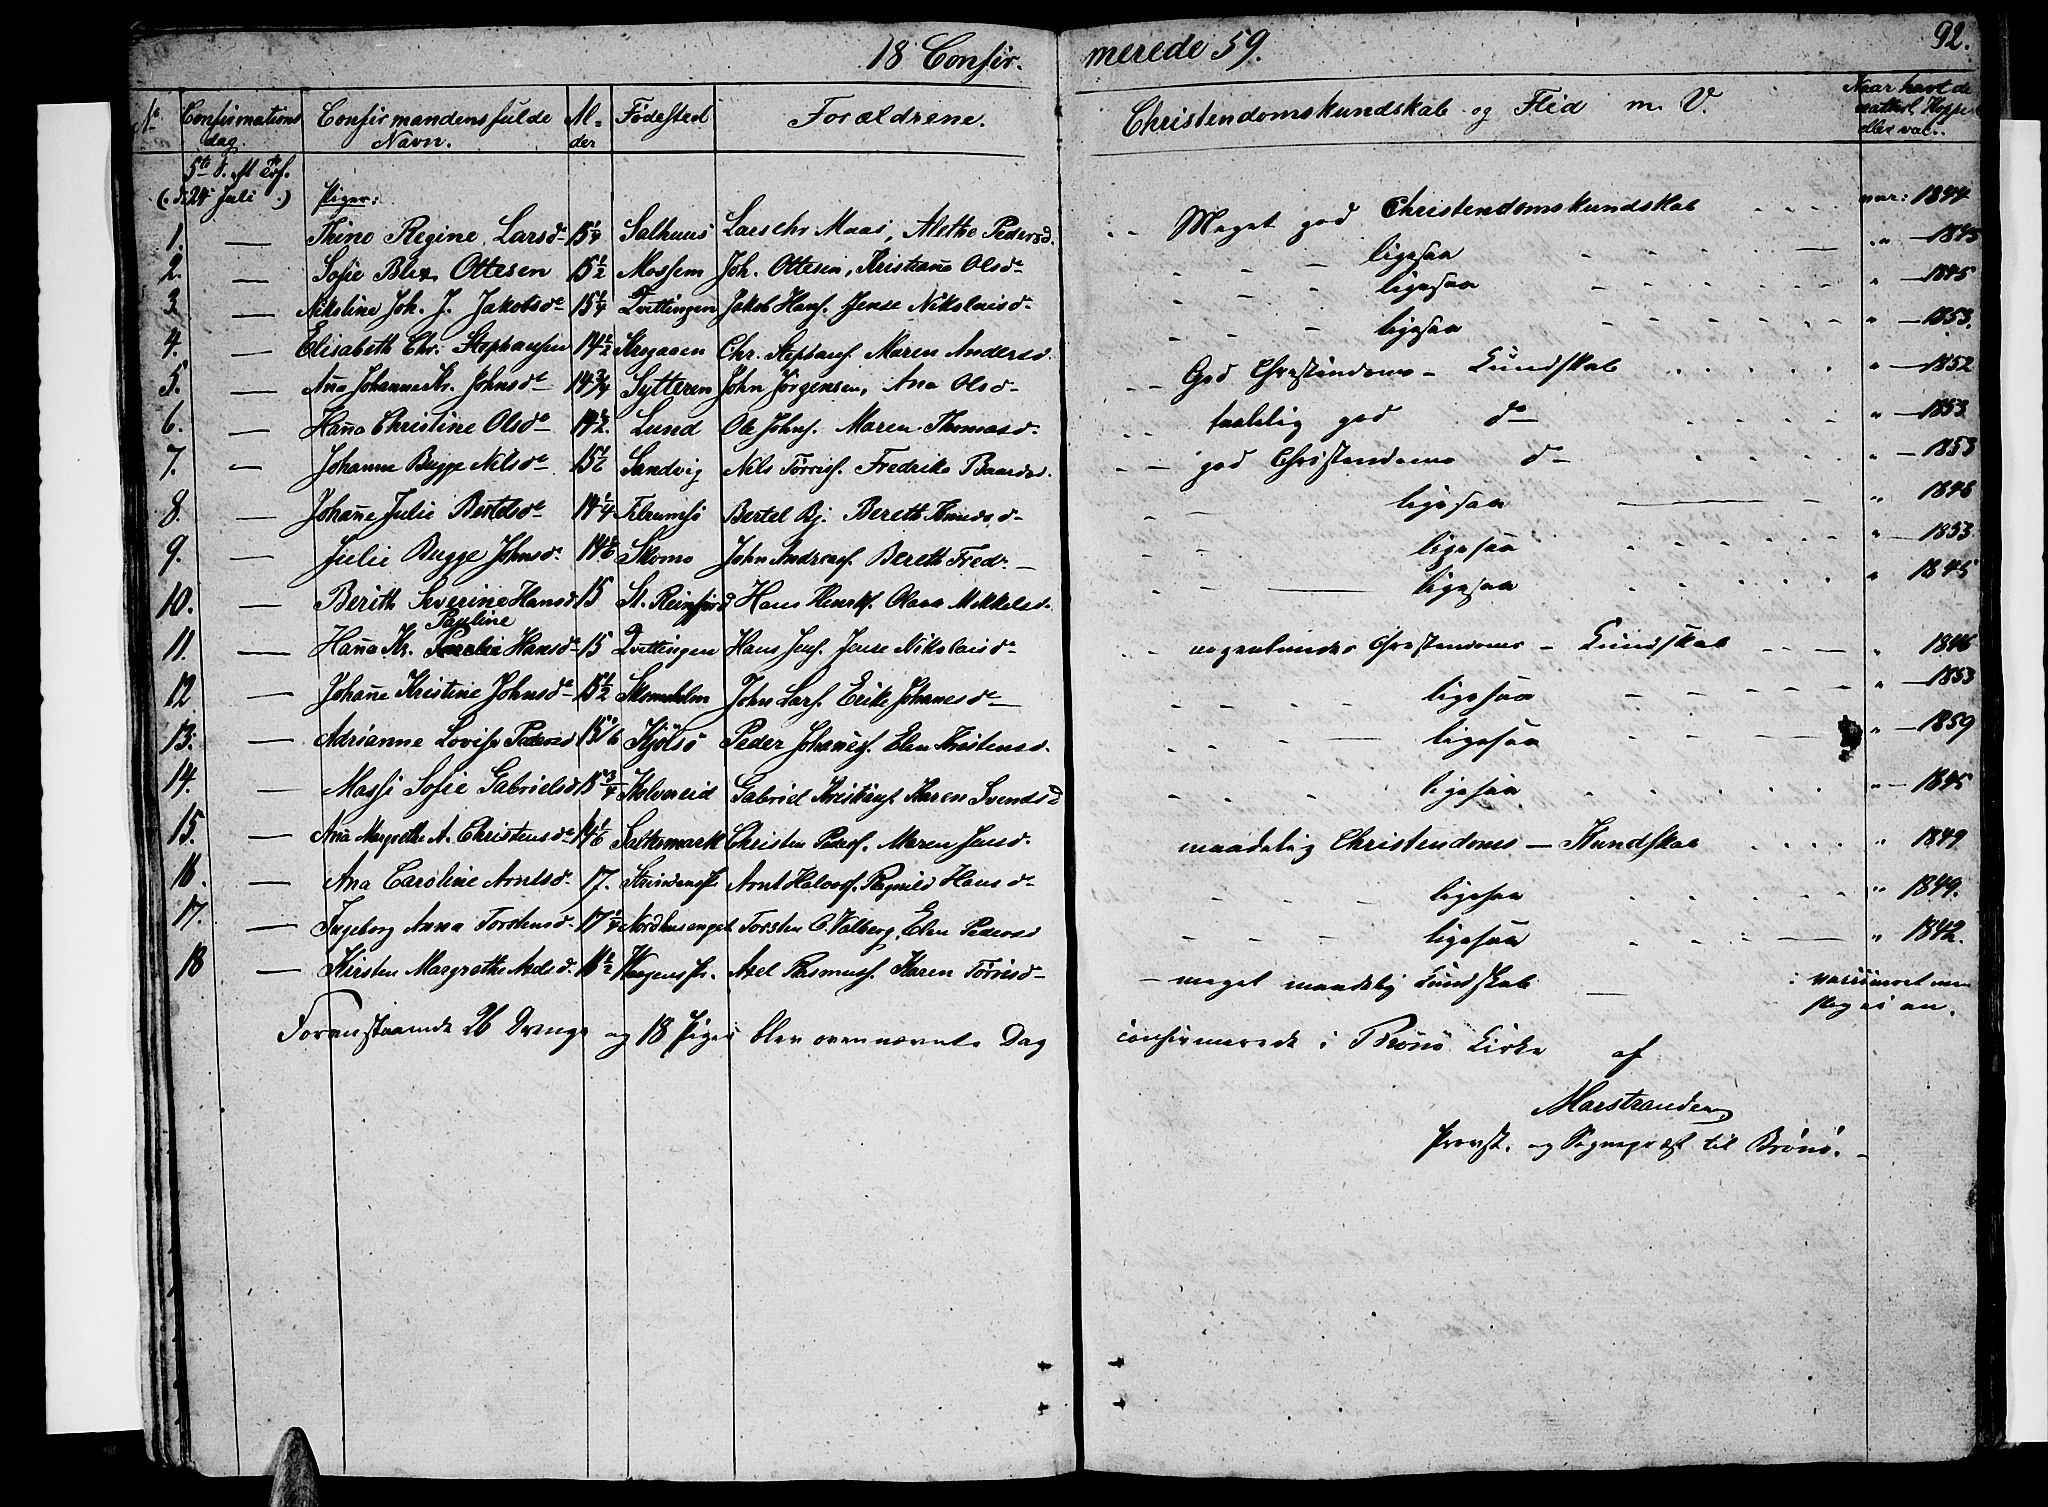 18 Confirmerede 59.
92.
No Confirmations dag. Confirmandens fulde Navn. Alder Fødested Forældrene. Christendomskundskab og Flid m. V. Naar havt de naturl. Kopper eller vac.
5te S. e. Tref. (d. 24 Juli)
Piger:
1. — Regine Larsd. 15 1/4 Salhuus Lars Chr Maas, Alethe Pedersd. Meget god Christendomskundskab var: 1844
2. — Sofie Blix Ottesen 15 1/2 Mossem Joh. Ottesen, Kristiane Olsd. ligesaa " 1845
3 — Nikoline Joh. J. Jakobsd. 15 1/4 Qvittingen Jakob Hans. Jense Nikolaisd. ligesaa " 1845
4. — Elisabeth Chr. Stephansen 14 1/2 Chr. Stephans. Maren Andersd. ligesaa " 1853.
5. — Ana Johanne Kr. Johnsd. 14 3/4 Sytteren John Jörgensen, Ana Olsd. God Christendoms-Kundskab " 1852
6. — Hana Christine Olsd. 14 1/2 Lund Ole Johns. Maren Thomasd. taalelig god do " 1853
7. — Johanne Bugge Nilsd. 15 1/6 Sandvig Nils Törris. Fredrike Baardsd. god Christendoms do " 1853
8. — Johane Julie Bertelsd. 14 1/4 Tilrumsö Bertel Bj. Bereth Knudsd. ligesaa " 1846
9. — Julie Bugge Johnsd. 14 1/6 Skomo John Andreas. Bereth Fred. ligesaa " 1853
10. — Berith Severine Hansd. 15 St. Reinfjord Hans Henriks. Olava Mikkelsd. ligesaa " 1845
11. — Hana Kr. Pauline Hansd. 15 Qvittingen Hans Jens. Jense Nikolaisd. nogenlunde Christendoms-Kundskab " 1846
12 — Johane Kristine Johnsd. 15 1/2 Skomoholm John Lars. Erike Johanesd. ligesaa " 1853
13. — Adrianne Lovise Pedersd 15 1/6 Kjölsö Peder Johanes. Elen Kristensd. ligesaa " 1859
14. — Massi Sofie Gabrielsd 15 3/4 Kolvereid Gabriel Kristians. Karen Svendsd ligesaa " 1845
15. — Ana Margrethe A. Christensd. 14 1/6 Saltermark Christen Peders. Maren Jensd. maadelig Christendoms-Kundskab " 1849
16. — Ana Caroline Arntsd. 17. Arnt Halvors. Ragnild Hansd. ligesaa " 1849.
17. — Ingeborg Anna Torstensd. 17 1/4 Nordhusenget Torsten O. Valberg, Elen Pedersd ligesaa " 1842.
18 — Kirsten Margrethe Axelsd. Axel Rasmus. Karen Törrisd. meget maadelig Kundskab vaccineret men slog ei an.
Foranstaaende 26 Drenge og 18 Piger blev ovennævnte Dag confirmerede i Brönö Kirke af
Marstrander
Provst. og Sognepræst til Brönö.